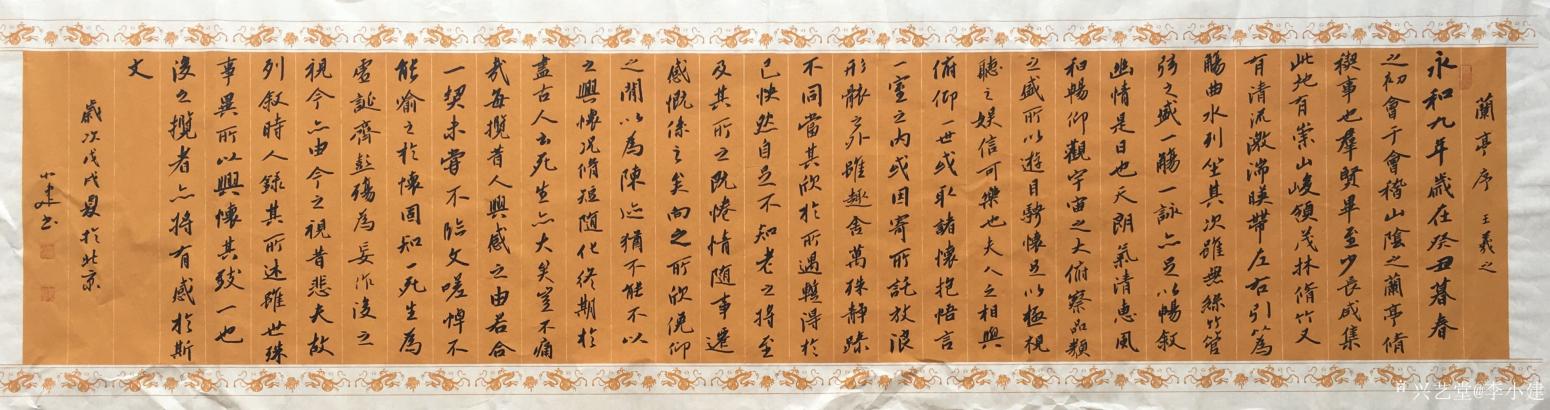 蘭亭序 王羲之
永和九年歲在癸丑暮春
之初會于會稽山陰之蘭亭脩
禊事也羣賢畢至少長咸集
此地有崇山峻領茂林脩竹又
有清流激湍暎帶左右引以為
觴曲水列坐其次雖無絲竹管
弦之盛一觴一詠亦足以暢敘
幽情是日也天朗氣清惠風
和暢仰觀宇宙之大俯察品類
之盛所以遊目騁懷足以極視
聽之娛信可樂也夫人之相與
俯仰一世或取諸懷抱悟言
一室之內或因寄所託放浪
形骸之外雖趣舍萬殊靜躁
不同當其欣於所遇蹔得於
己快然自足不知老之將至
及其所之既惓情隨事遷
感慨係之矣向之所欣俛仰
之閒以為陳迹猶不能不以
之興懷況脩短隨化終期於
盡古人云死生亦大矣豈不痛
哉每攬昔人興感之由若合
一契未嘗不臨文嗟悼不
能喻之於懷固知一死生為
虛誕齊彭殤為妄作後之
視今亦由今之視昔悲夫故
列敘時人錄其所述雖世殊
事異所以興懷其致一也
後之攬者亦將有感於斯
文
歲次戊戌夏於北京
小建書
兴艺堂@李小建